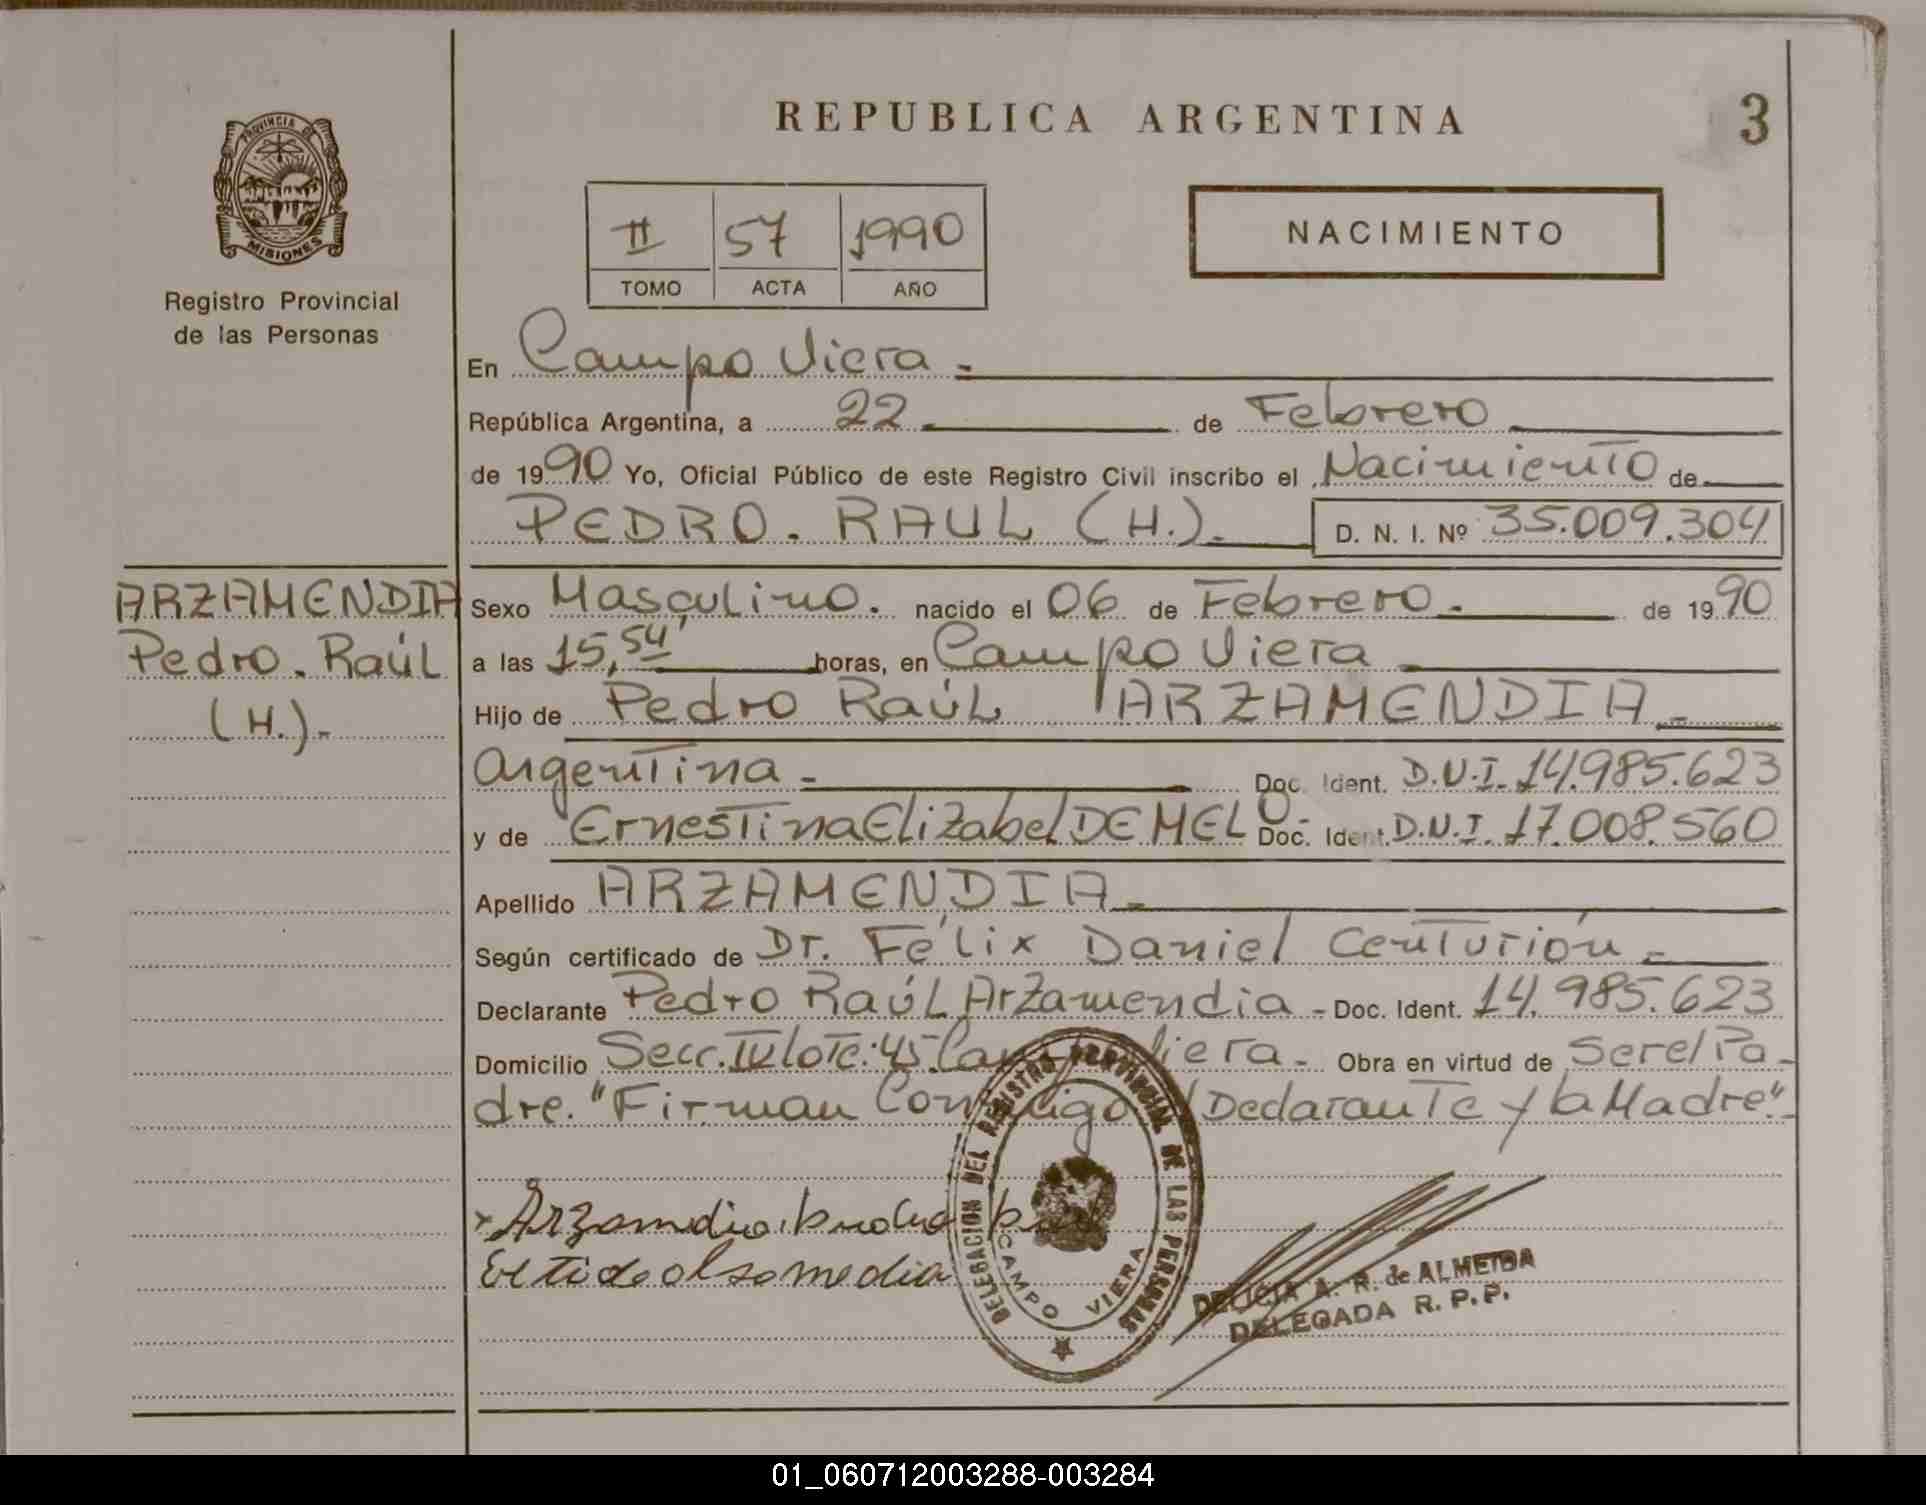 REPUBLICA ARGENTINA
3
PROVINCIA DE
MISIONES
Registro Provincial
de las Personas
II 57 1990
TOMO ACTA AÑO
NACIMIENTO
En Campo Viera -
República Argentina, a 22 de Febrero
de 1990 Yo, Oficial Público de este Registro Civil inscribo el Nacimiento de
PEDRO. RAUL (H.). D. N. I. Nº 35.009.304
ARZAMENDIA
Pedro. Raúl
(H.).-
Sexo Masculino. nacido el 06 de Febrero. de 1990
a las 15,54' horas, en Campo Viera
Hijo de Pedro Raúl ARZAMENDIA
Argentina - Doc. Ident. D.N.I. 14.985.623
y de Ernestina Elizabel DE MELO - Doc. Ident. D.N.I. 17.008.560
Apellido ARZAMENDIA -
Según certificado de Dr. Félix Daniel Centurión -
Declarante Pedro Raúl Arzamendia - Doc. Ident. 14.985.623
Domicilio Secc. IV lote: 45 Campo Viera - Obra en virtud de Ser el Pa-
dre. "Firman Conmigo Declarante y la Madre".
DELEGACION DEL REGISTRO PROVINCIAL DE LAS PERSONAS
CAMPO VIERA
DELICIA A. R. de ALMEIDA
DELEGADA R. P. P.
01_060712003288-003284